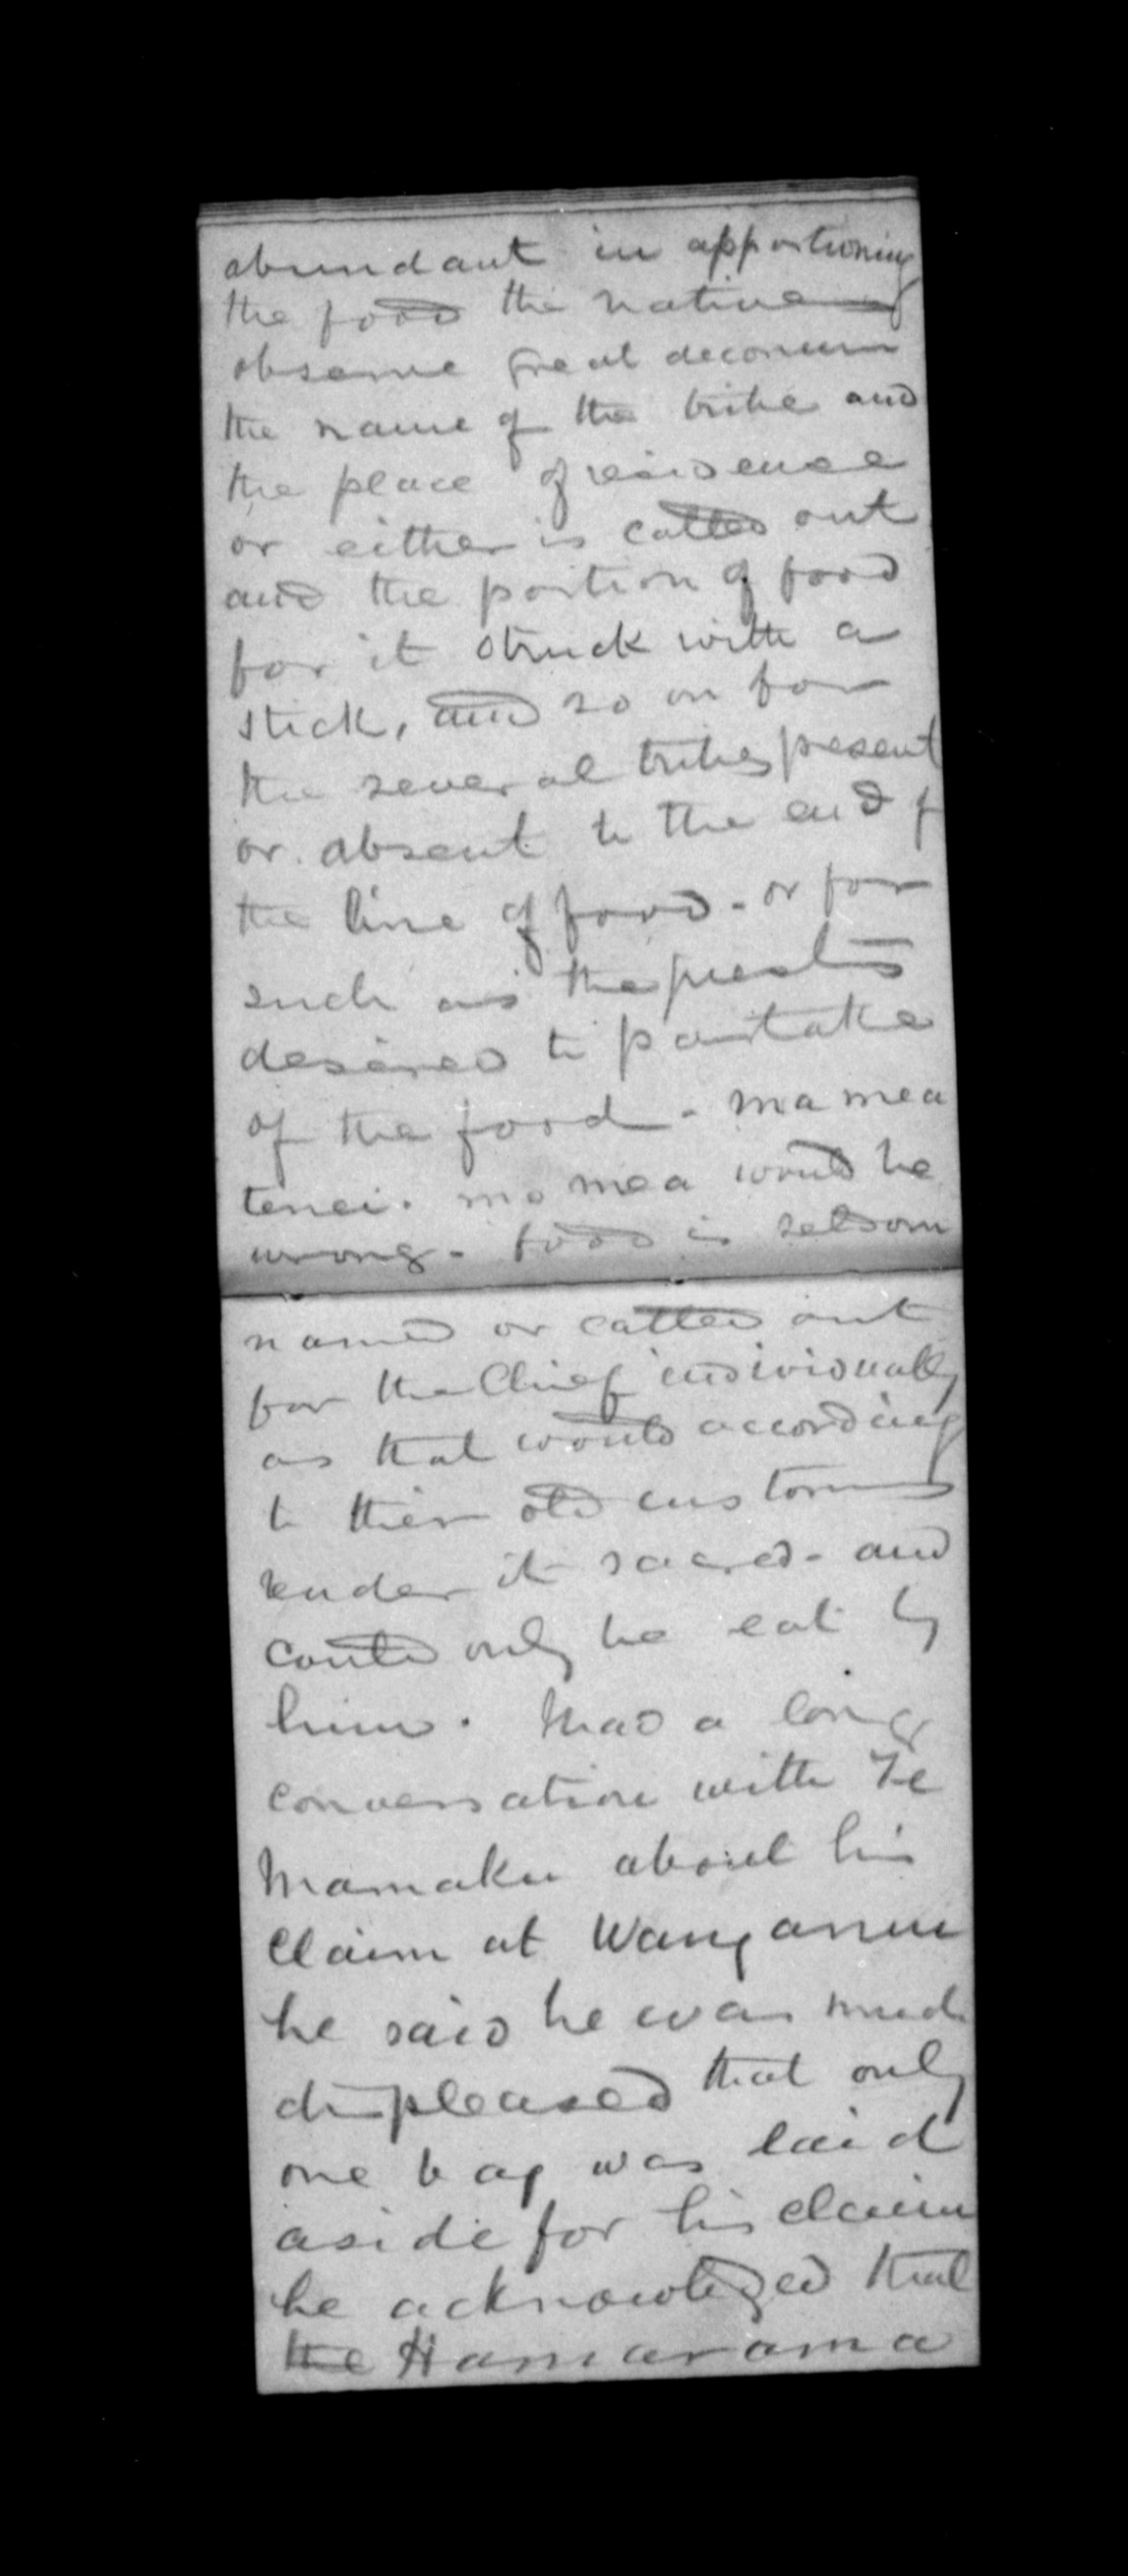 abundant in apportioning
the food the natives
observe great decorum
the name of the tribe and
the place of residence
or either is called out
and the portion of food
for it struck with a
stick, and so on for
the several tribes present
or absent to the end of
the line of food - or for
such as the
desired to partake
of the food - ma mea
tenei. mo mea would be
wrong - food is seldom
named or called out
for the Chief individually
as that would according
to their old customs
render it sacred - and
could only be eat by
him. Had a long
conversation with Te
Mamaku about his
Claim at Wanganui
he said he was much
displeased that only
one bag was laid
aside for his claim
he acknowledged that
the